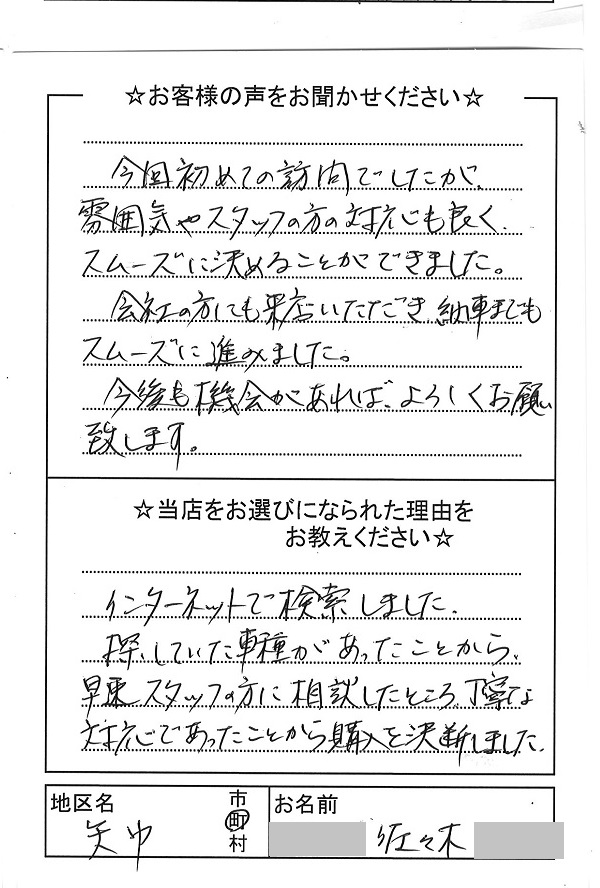 ☆お客様の声をお聞かせください☆
今回初めての訪問でしたが、
雰囲気やスタッフの方の対応も良く、
スムーズに決めることができました。
会社の方にも来店いただき、納車までも
スムーズに進みました。
今後も機会があれば、よろしくお願い
致します。
☆当店をお選びになられた理由を
お教えください☆
インターネットで検索しました。
探していた車種があったことから、
早速スタッフの方に相談したところ、丁寧な
対応であったことから購入を決断しました。
地区名 矢巾 市町村 お名前 佐々木